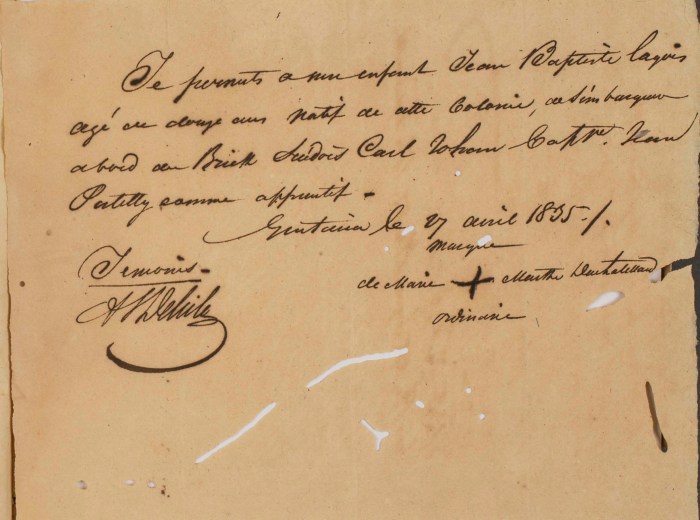 Je permets a mon enfant Jean Baptiste Lagois
agé de douze ans natif de cette Colonie, de s'embarquer
abord du Brick Suédois Carl Johan Captne. Jean
comme apprentif.
Gustavia le 27 avril 1835./.
marque
de Marie + Marthe
ordinaire
Temoins.